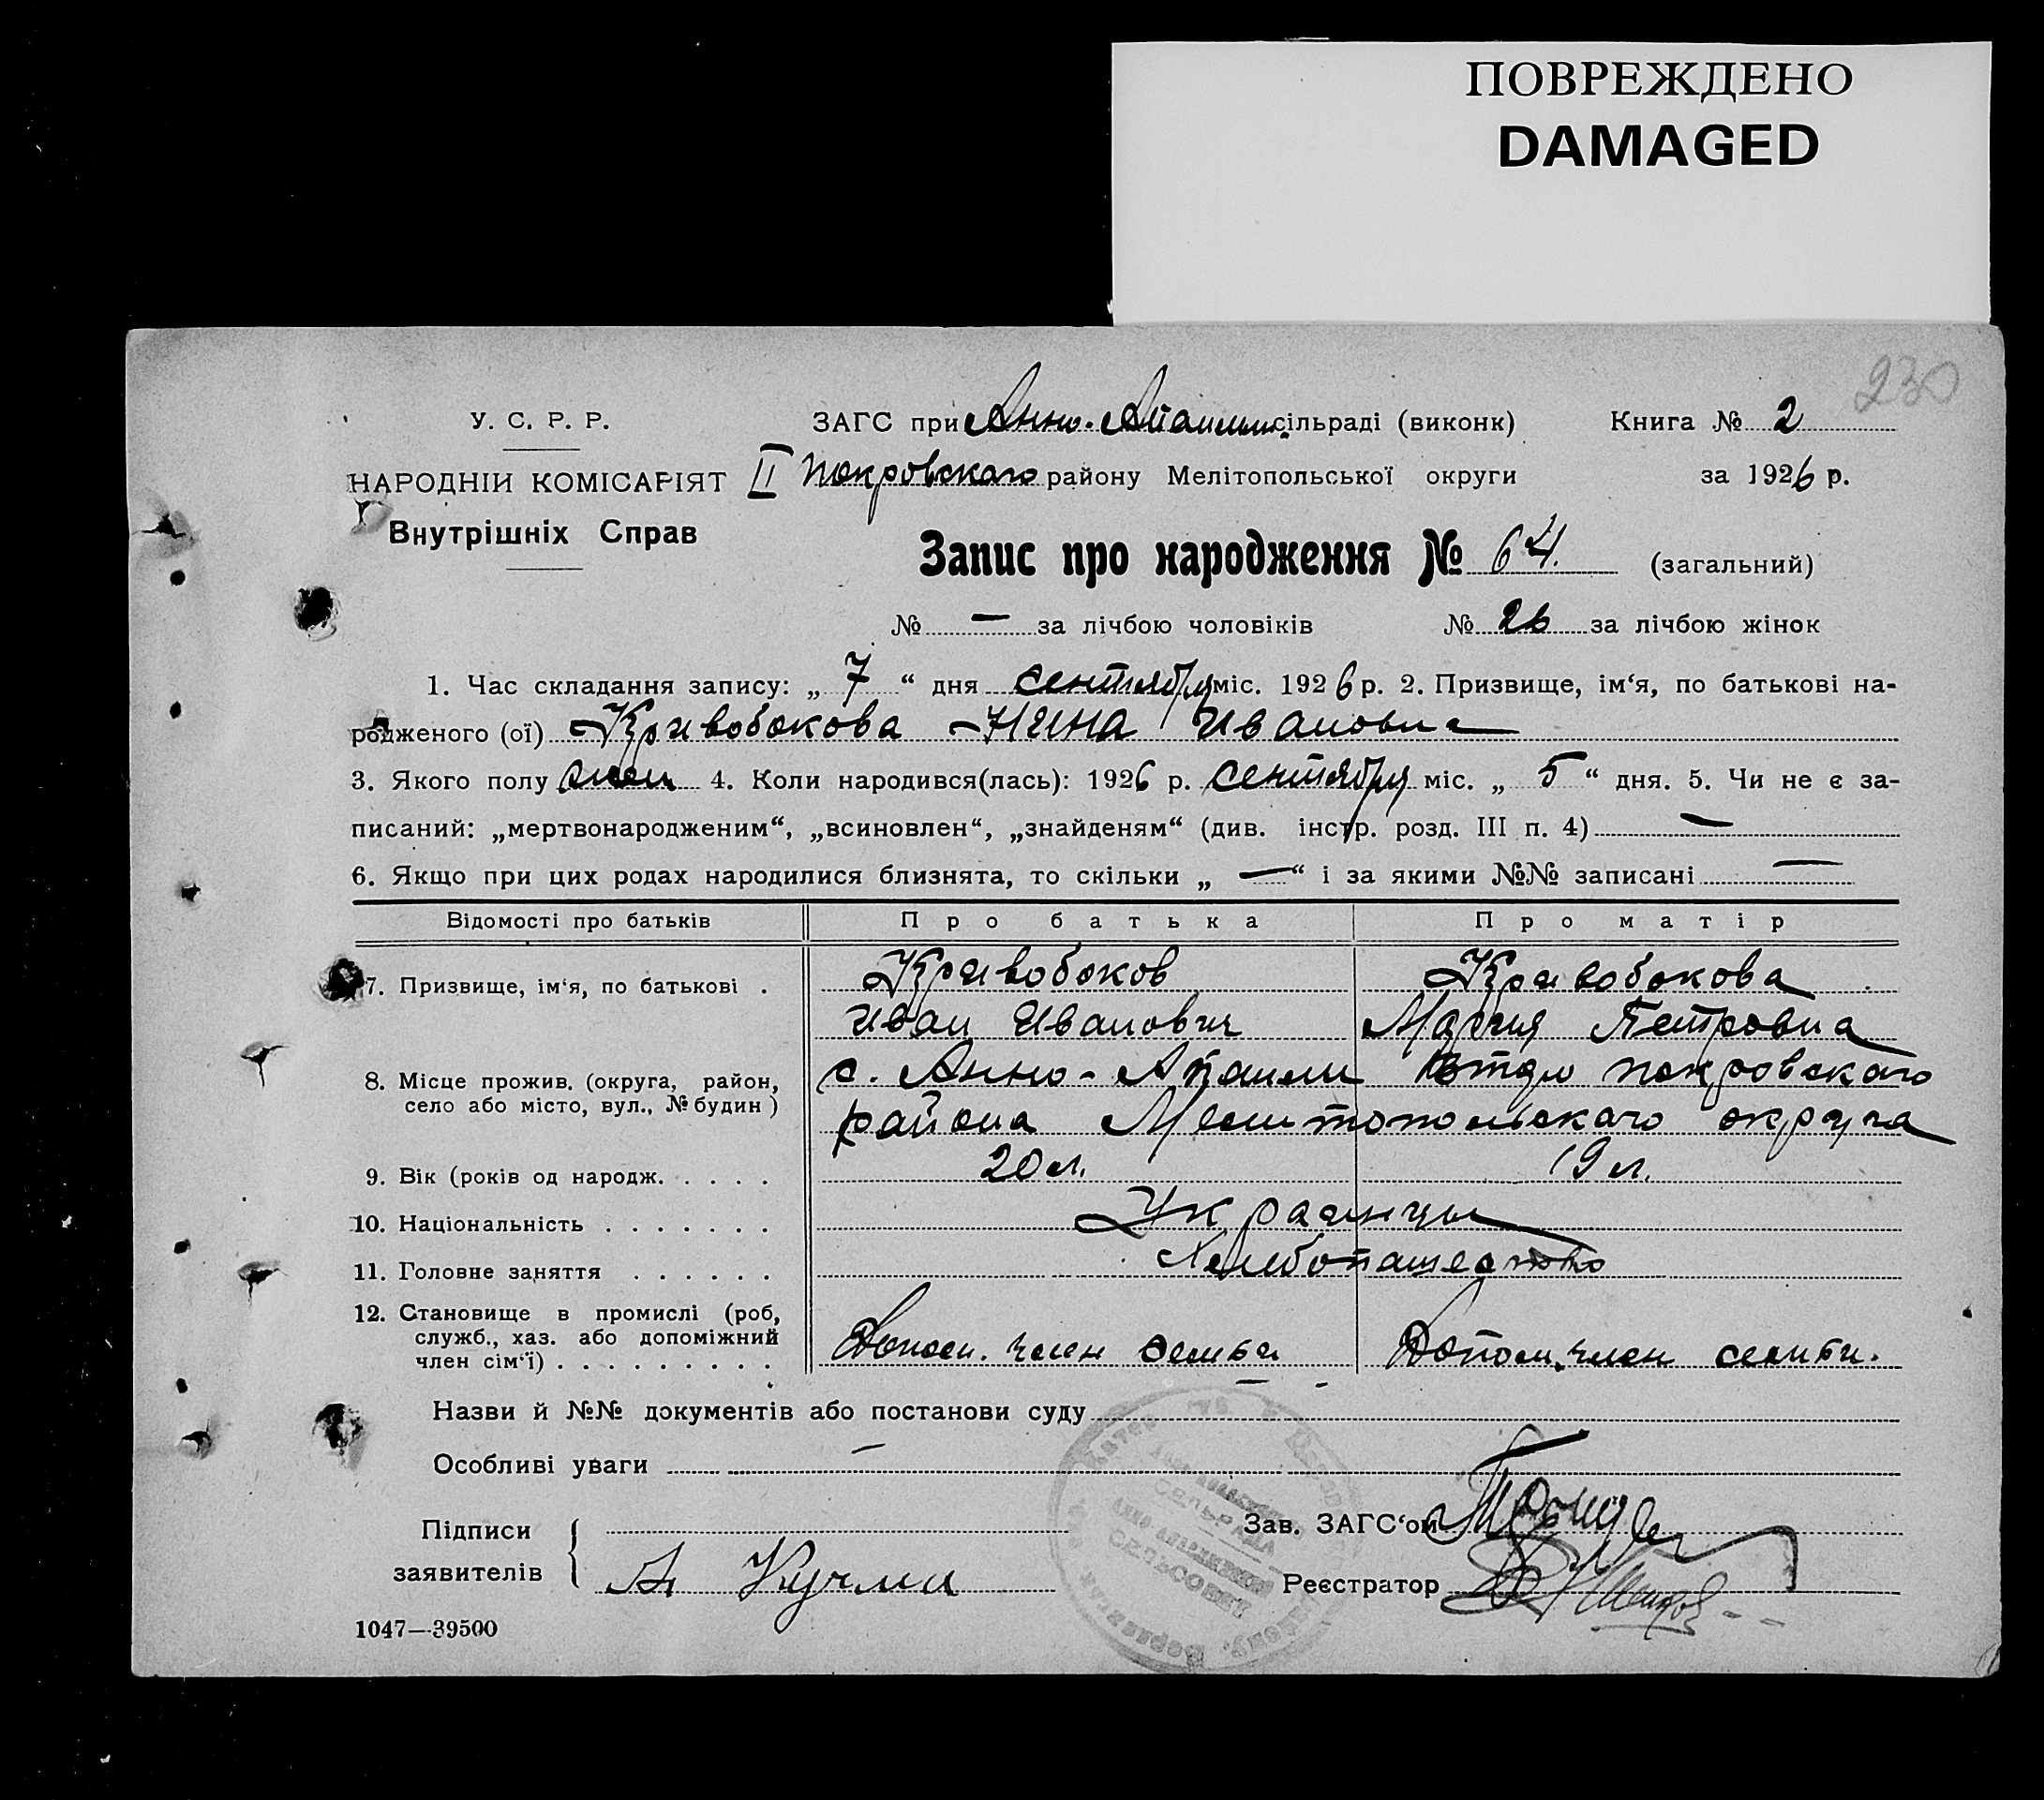 ПОВРЕЖДЕНО
DAMAGED
230
У. С. Р. Р.
ЗАГС при Анно-Апанли. сільраді (виконк)
Книга № 2
НАРОДНІЙ КОМІСАРІЯТ
II Покровскаго району Мелітопольської округи
за 1926 р.
Внутрішніх Справ
Запис про народження № 64. (загальний)
№ — за лічбою чоловіків № 26 за лічбою жінок
1. Час складання запису: „ 7 “ дня сентября міс. 1926 р. 2. Призвище, ім‘я, по батькові на-
родженого (ої) Кривобокова Нина Ивановна
3. Якого полу жен 4. Коли народився(лась): 1926 р. сентября міс. „ 5 “ дня. 5. Чи не є за-
писаний: „мертвонародженим“, „всиновлен“, „знайденям“ (див. інстр. розд. III п. 4) —
6. Якщо при цих родах народилися близнята, то скільки „ — “ і за якими №№ записані —
Відомості про батьків Про батька Про матір
7. Призвище, ім‘я, по батькові . Кривобоков Кривобокова
Иван Иванович Мария Петровна
8. Місце прожив. (округа, район, с. Анно-Апанли покровскаго
село або місто, вул., № будин ) района Мелитопольскаго округа
9. Вік (років од народж. . . . . 20 л. 19 л.
10. Національність . . . . . . . Украинцы
11. Головне заняття . . . . . . Хлебопашество
12. Становище в промислі (роб,
служб., хаз. або допоміжний
член сім‘ї) . . . . . . . . . Допом. член семьи Допом. член семьи.
Назви й №№ документів або постанови суду —
Особливі уваги —
СЕЛЬРАДА
СЕЛЬСОВЕТ
Підписи
заявителів
Зав. ЗАГС‘ом
А Кучма
Реєстратор
1047—39500